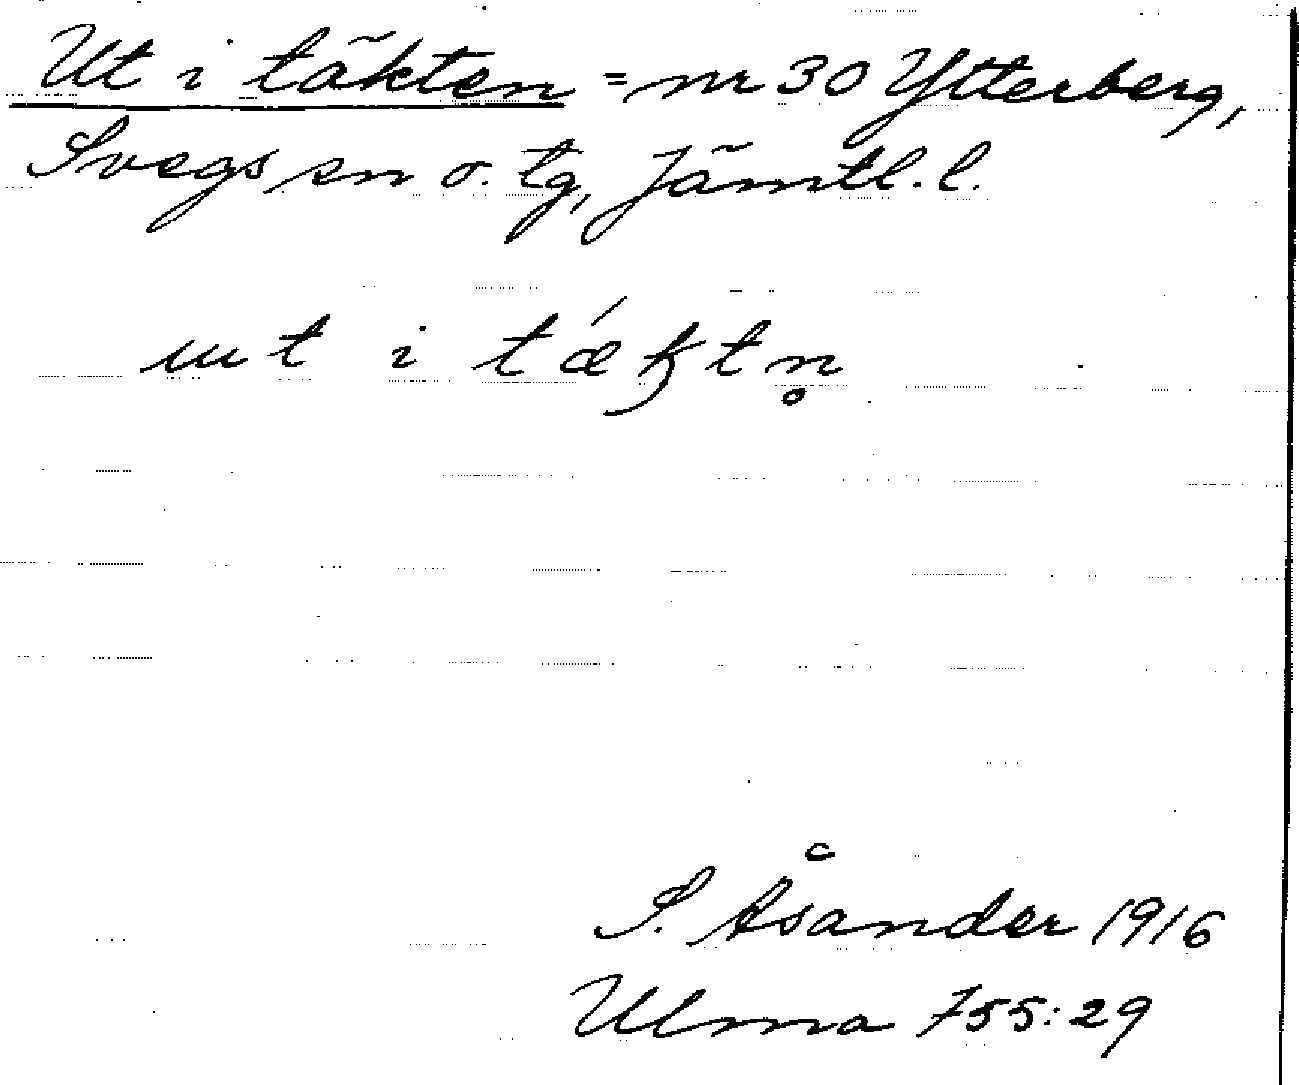 Ut i täkten = nr 30 Ytterberg,
Svegs sn o. tg, Jämtl. l.
ut i tǽktn̥
S. Åsander 1916
Ulma 755:29